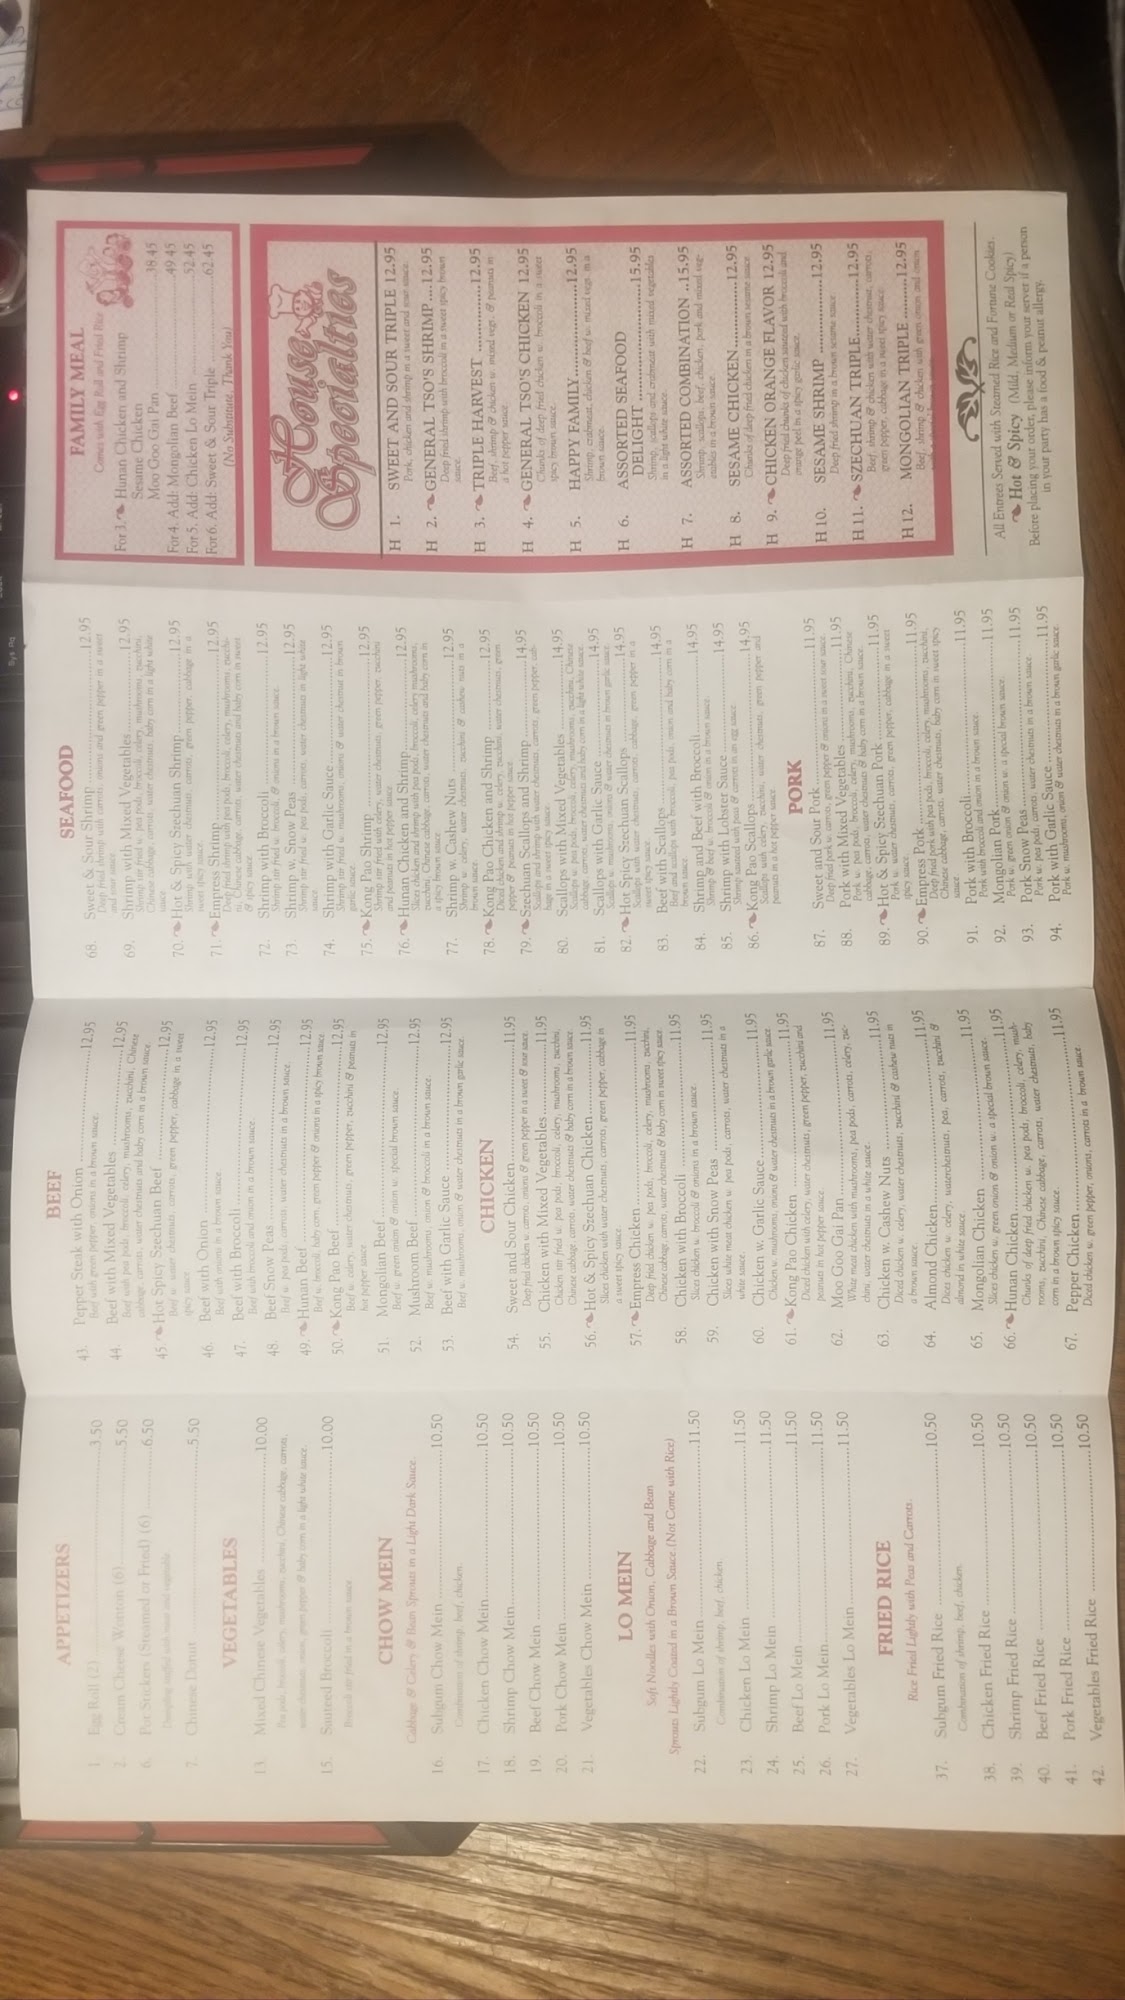 APPETIZERS
1. Egg Roll (2) 3.50
2. Cream Cheese Wonton (6) 5.50
6. Pot Stickers (Steamed or Fried) (6) 6.50
Dumpling stuffed with meat and vegetable.
7. Chinese Donut 5.50
VEGETABLES
13. Mixed Chinese Vegetables 10.00
Pea pods, broccoli, celery, mushrooms, zucchini, Chinese cabbage, carrots,
water chestnuts, onion, green pepper & baby corn in a light white sauce.
15. Sauteed Broccoli 10.00
Broccoli stir fried in a brown sauce.
CHOW MEIN
Cabbage & Celery & Bean Sprouts in a Light Dark Sauce.
16. Subgum Chow Mein 10.50
Combination of shrimp, beef, chicken.
17. Chicken Chow Mein 10.50
18. Shrimp Chow Mein 10.50
19. Beef Chow Mein 10.50
20. Pork Chow Mein 10.50
21. Vegetables Chow Mein 10.50
LO MEIN
Soft Noodles with Onion, Cabbage and Bean
Sprouts Lightly Coated in a Brown Sauce.(Not Come with Rice)
22. Subgum Lo Mein 11.50
Combination of shrimp, beef, chicken.
23. Chicken Lo Mein 11.50
24. Shrimp Lo Mein 11.50
25. Beef Lo Mein 11.50
26. Pork Lo Mein 11.50
27. Vegetables Lo Mein 11.50
FRIED RICE
Rice Fried Lightly with Peas and Carrots.
37. Subgum Fried Rice 10.50
Combination of shrimp, beef, chicken.
38. Chicken Fried Rice 10.50
39. Shrimp Fried Rice 10.50
40. Beef Fried Rice 10.50
41. Pork Fried Rice 10.50
42. Vegetables Fried Rice 10.50
BEEF
43. Pepper Steak with Onion 12.95
Beef with green pepper, onions in a brown sauce.
44. Beef with Mixed Vegetables 12.95
Beef with pea pods, broccoli, celery, mushrooms, zucchini, Chinese
cabbage, carrots, water chestnuts and baby corn in a brown sauce.
45. Hot & Spicy Szechuan Beef 12.95
Beef w. water chestnuts, carrots, green pepper, cabbage in a sweet
spicy sauce.
46. Beef with Onion 12.95
Beef with onions in a brown sauce.
47. Beef with Broccoli 12.95
Beef with broccoli and onion in a brown sauce.
48. Beef Snow Peas 12.95
Beef w. pea pods, carrots, water chestnuts in a brown sauce.
49. Hunan Beef 12.95
Beef w. broccoli, baby corn, green pepper & onions in a spicy brown sauce.
50. Kong Pao Beef 12.95
Beef w. celery, water chestnuts, green pepper, zucchini & peanuts in
hot pepper sauce.
51. Mongolian Beef 12.95
Beef w. green onion & onion w. special brown sauce.
52. Mushroom Beef 12.95
Beef w. mushrooms, onion & broccoli in a brown sauce.
53. Beef with Garlic Sauce 12.95
Beef w. mushrooms, onion & water chestnuts in a brown garlic sauce.
CHICKEN
54. Sweet and Sour Chicken 11.95
Deep fried chicken w. carrots, onions & green pepper in a sweet & sour sauce.
55. Chicken with Mixed Vegetables 11.95
Chicken stir fried w. pea pods, broccoli, celery, mushrooms, zucchini,
Chinese cabbage, carrots, water chestnuts & baby corn in a brown sauce.
56. Hot & Spicy Szechuan Chicken 11.95
Slices chicken with water chestnuts, carrots, green pepper, cabbage in
a sweet spicy sauce.
57. Empress Chicken 11.95
Deep fried chicken w. pea pods, broccoli, celery, mushrooms, zucchini,
Chinese cabbage, carrots, water chestnuts & baby corn in sweet spicy sauce.
58. Chicken with Broccoli 11.95
Slices chicken w. broccoli & onions in a brown sauce.
59. Chicken with Snow Peas 11.95
Slices white meat chicken w. pea pods, carrots, water chestnuts in a
white sauce.
60. Chicken w. Garlic Sauce 11.95
Chicken w. mushrooms, onions & water chestnuts in a brown garlic sauce.
61. Kong Pao Chicken 11.95
Diced chicken with celery, water chestnuts, green pepper, zucchini and
peanuts in hot pepper sauce.
62. Moo Goo Gai Pan 11.95
White meat chicken with mushrooms, pea pods, carrots, celery, zuc-
chini, water chestnuts in a white sauce.
63. Chicken w. Cashew Nuts 11.95
Diced chicken w. celery, water chestnuts, zucchini & cashew nuts in
a brown sauce.
64. Almond Chicken 11.95
Dices chicken w. celery, waterchestnuts, pea, carrots, zucchini &
almond in white sauce.
65. Mongolian Chicken 11.95
Slices chicken w. green onion & onion w. a special brown sauce.
66. Hunan Chicken 11.95
Chunks of deep fried chicken w. pea pods, broccoli, celery, mush-
rooms, zucchini, Chinese cabbage, carrots, water chestnuts, baby
corn in a brown spicy sauce.
67. Pepper Chicken 11.95
Diced chicken w. green pepper, onions, carrots in a brown sauce.
SEAFOOD
68. Sweet & Sour Shrimp 12.95
Deep fried shrimp with carrots, onions and green pepper in a sweet
and sour sauce.
69. Shrimp with Mixed Vegetables 12.95
Shrimp stir fried w. pea pods, broccoli, celery, mushrooms, zucchini,
Chinese cabbage, carrots, water chestnuts, baby corn in a light white
sauce.
70. Hot & Spicy Szechuan Shrimp 12.95
Shrimp with water chestnuts, carrots, green pepper, cabbage in a
sweet spicy sauce.
71. Empress Shrimp 12.95
Deep fried shrimp with pea pods, broccoli, celery, mushrooms, zucchi-
ni, Chinese cabbage, carrots, water chestnuts and baby corn in sweet
& spicy sauce.
72. Shrimp with Broccoli 12.95
Shrimp stir fried w. broccoli, & onions in a brown sauce.
73. Shrimp w. Snow Peas 12.95
Shrimp stir fried w. pea pods, carrots, water chestnuts in light white
sauce.
74. Shrimp with Garlic Sauce 12.95
Shrimp stir fried w. mushrooms, onions & water chestnut in brown
garlic sauce.
75. Kong Pao Shrimp 12.95
Shrimp stir fried with celery, water chestnuts, green pepper, zucchini
and peanuts in hot pepper sauce.
76. Hunan Chicken and Shrimp 12.95
Slices chicken and shrimp with pea pods, broccoli, celery, mushrooms,
zucchini, Chinese cabbage, carrots, water chestnuts and baby corn in
a spicy brown sauce.
77. Shrimp w. Cashew Nuts 12.95
Shrimp w. celery, water chestnuts, zucchini & cashew nuts in a
brown sauce.
78. Kong Pao Chicken and Shrimp 12.95
Diced chicken and shrimp w. celery, zucchini, water chestnuts, green
pepper & peanuts in hot pepper sauce.
79. Szechuan Scallops and Shrimp 14.95
Scallops and shrimp with water chestnuts, carrots, green pepper, cab-
bage in a sweet spicy sauce.
80. Scallops with Mixed Vegetables 14.95
Scallops w. pea pods, broccoli, celery, mushrooms, zucchini, Chinese
cabbage, carrots, water chestnuts and baby corn in a light white sauce.
81. Scallops with Garlic Sauce 14.95
Scallops w. mushrooms, onions & water chestnuts in brown garlic sauce.
82. Hot Spicy Szechuan Scallops 14.95
Scallops with water chestnuts, carrots, cabbage, green pepper in a
sweet spicy sauce.
83. Beef with Scallops 14.95
Beef and scallops with broccoli, pea pods, onion and baby corn in a
brown sauce.
84. Shrimp and Beef with Broccoli 14.95
Shrimp & beef w. broccoli & onion in a brown sauce.
85. Shrimp with Lobster Sauce 14.95
Shrimp sauteed with peas & carrots in an egg sauce.
86. Kong Pao Scallops 14.95
Scallops with celery, zucchini, water chestnuts, green pepper and
peanuts in a hot pepper sauce.
PORK
87. Sweet and Sour Pork 11.95
Deep fried pork w. carrots, green pepper & onions in a sweet sour sauce.
88. Pork with Mixed Vegetables 11.95
Pork w. pea pods, broccoli, celery, mushrooms, zucchini, Chinese
cabbage, carrots, water chestnuts & baby corn in a brown sauce.
89. Hot & Spicy Szechuan Pork 11.95
Pork w. water chestnuts, carrots, green pepper, cabbage in a sweet
spicy sauce.
90. Empress Pork 11.95
Deep fried pork with pea pods, broccoli, celery, mushrooms, zucchini,
Chinese cabbage, carrots, water chestnuts, baby corn in sweet spicy
sauce.
91. Pork with Broccoli 11.95
Pork with broccoli and onion in a brown sauce.
92. Mongolian Pork 11.95
Pork w. green onion & onion w. a special brown sauce.
93. Pork Snow Peas 11.95
Pork w. pea pods, carrots, water chestnuts in a brown sauce.
94. Pork with Garlic Sauce 11.95
Pork w. mushrooms, onion & water chestnuts in a brown garlic sauce.
FAMILY MEAL
Comes with Egg Roll and Fried Rice
For 3. Hunan Chicken and Shrimp
Sesame Chicken
Moo Goo Gai Pan 38.45
For 4. Add: Mongolian Beef 49.45
For 5. Add: Chicken Lo Mein 52.45
For 6. Add: Sweet & Sour Triple 62.45
(No Substitute, Thank You)
House
Specialties
H 1. SWEET AND SOUR TRIPLE 12.95
Pork, chicken and shrimp in a sweet and sour sauce.
H 2. GENERAL TSO'S SHRIMP 12.95
Deep fried shrimp with broccoli in a sweet spicy brown
sauce.
H 3. TRIPLE HARVEST 12.95
Beef, shrimp & chicken w. mixed vegs. & peanuts in
a hot pepper sauce.
H 4. GENERAL TSO'S CHICKEN 12.95
Chunks of deep fried chicken w. broccoli in a sweet
spicy brown sauce.
H 5. HAPPY FAMILY 12.95
Shrimp, crabmeat, chicken & beef w. mixed vegs. in a
brown sauce.
H 6. ASSORTED SEAFOOD
DELIGHT 15.95
Shrimp, scallops and crabmeat with mixed vegetables
in a light white sauce.
H 7. ASSORTED COMBINATION 15.95
Shrimp, scallops, beef, chicken, pork and mixed veg-
etables in a brown sauce.
H 8. SESAME CHICKEN 12.95
Chunks of deep fried chicken in a brown sesame sauce.
H 9. CHICKEN ORANGE FLAVOR 12.95
Deep fried chunks of chicken sauteed with broccoli and
orange peels in a spicy garlic sauce.
H 10. SESAME SHRIMP 12.95
Deep fried shrimp in a brown sesame sauce.
H 11. SZECHUAN TRIPLE 12.95
Beef, shrimp & chicken with water chestnut, carrots,
green pepper, cabbage in a sweet spicy sauce.
H 12. MONGOLIAN TRIPLE 12.95
Beef, shrimp & chicken with green onion and onion
All Entrees Served with Steamed Rice and Fortune Cookies.
Hot & Spicy (Mild, Medium or Real Spicy)
Before placing your order, please inform your server if a person
in your party has a food & peanut allergy.